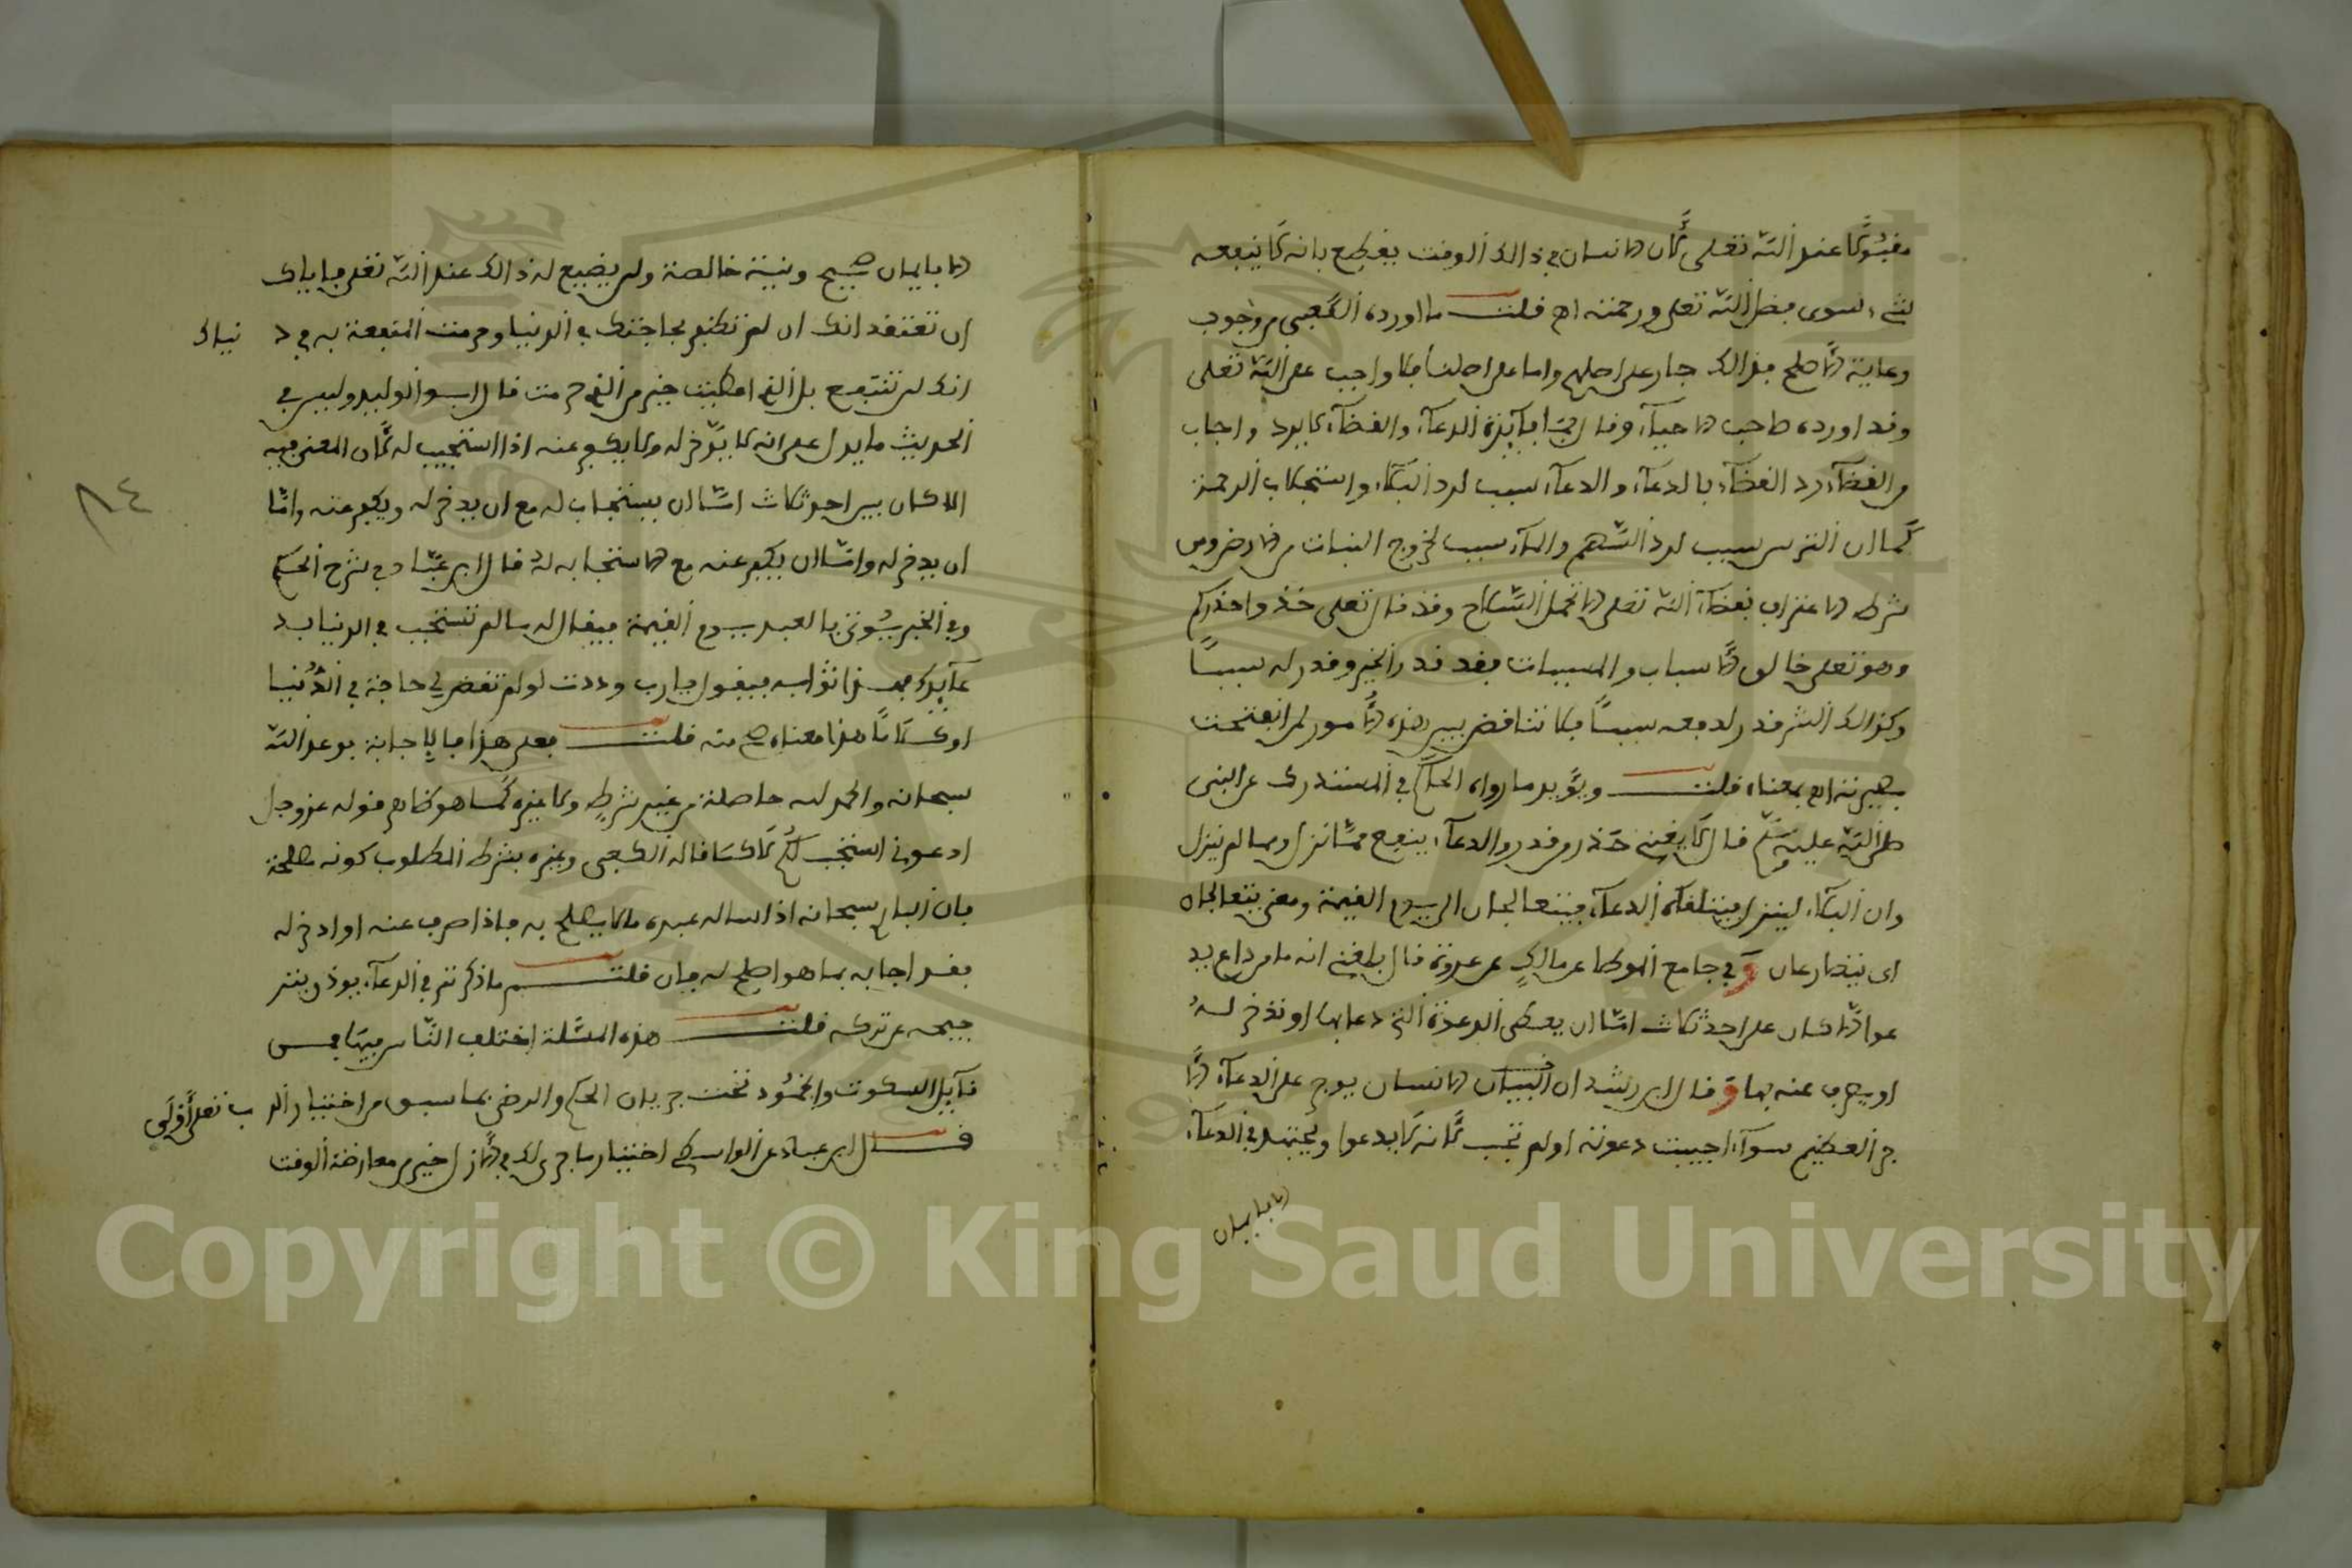 مقبولا عند الله تعلى لان الانسان في ذالك الوقت يقطع بانه لا ينفعه
شيء سوى فضل الله تعلى ورحمته اه قلت ما اورده الكعبي من وجوب
رعاية الاصلح فذالك جار على اصلهم واما على اصلنا فلا واجب على الله تعلى
وقد اورده صاحب الاحياء وقال فما فايدة الدعاء والقضاء لا يرد واجاب
من القضاء رد القضاء بالدعاء والدعاء سبب لرد البلاء واستجلاب الرحمة
كما ان الترس سبب لرد السهم والماء سبب لخروج النبات من الارض وليس
شرط الاعتراف بقضاء الله تعلى الا تحمل السلاح وقد قال تعلى خذوا حذركم
وهو تعلى خالق الاسباب والمسببات فقد قدر الخير وقدر له سببا
وكذالك الشر قدر لدفعه سببا فلا تناقض بين هذه الامور لمن انفتحت
بصيرته اه بمعناه قلت ويؤيد ما رواه الحاكم في المستدرك عن النبي
صلى الله عليه وسلم قال لا يغني حذر من قدر والدعاء ينفع مما نزل ومما لم ينزل
وان البلاء لينزل فيتلقاه الدعاء فيتعالجان الى يوم القيمة ومعنى يتعالجان
اى يتصارعان وفي جامع الموطا عن مالك عن عروة قال بلغني انه ما من داع يد
عوا الا كان على احد ثلاث اما ان يعطى الدعوة التي دعا بها او تدخر له
او يصرف عنه بها وقال ابن رشد ان البيان الانسان يوجر على الدعاء الا
جر العظيم سواء اجيبت دعوته او لم تجب لانه لا يدعوا ويجتهد في الدعاء
الا بايمان
الا بايمان صحيح ونية خالصة ولن يضيع له ذالك عند الله تعلى فاياك
ان تعتقد انك ان لم تظفر بحاجتك في الدنيا وحرمت المنفعة به في د نياك
انك لن تنتفع بل الذي اعطيت خير من الذي حرمت قال ابو الوليد وليس في
الحديث ما يدل على انه لا يدخر له ولا يكفر عنه اذا استجيب له لان المعنى فيه
الا كان بين احد ثلاث اما ان يستجاب له مع ان يدخر له ويكفر عنه واما
ان يدخر له واما ان يكفر عنه مع الاستجابه له قال ابن عباد في شرح الحكم
وفي الخبر يوتى بالعبد يوم القيمة فيقال له ما لم تستجب في الدنيا بد
عآيك فهذا ثوابه فيقول يارب وددت لو لم تقض لي حاجة في الدنيا
او كلاما هذا معناه صح منه قلت فعلى هذا فالاجابة بوعد الله
سبحانه والحمد لله حاصلة من غير شرط ولا غيره كما هو ظاهر قوله عز وجل
ادعوني استجب لكم لا كما قاله الكعبي وغيره بشرط المطلوب كونه مصلحة
فان الباري سبحانه اذا ساله عبده ما لا يصلح به فاذا صرف عنه او ادخر له
فقد اجابه بما هو اصلح له فان قلت ما ذكرته في الدعاء يوذن بتر
جيحه على تركه قلت هذه المسئلة اختلف الناس فيها فمن
قآيل السكوت والخمود تحت جريان الحكم والرضى بما سبق من اختيار الر ب تعلى اولى
قال ابن عباد عن الواسطي اختيار ما جرى لك في الازل خير من معارضة الوقت
٨٤
Copyright © King Saud University